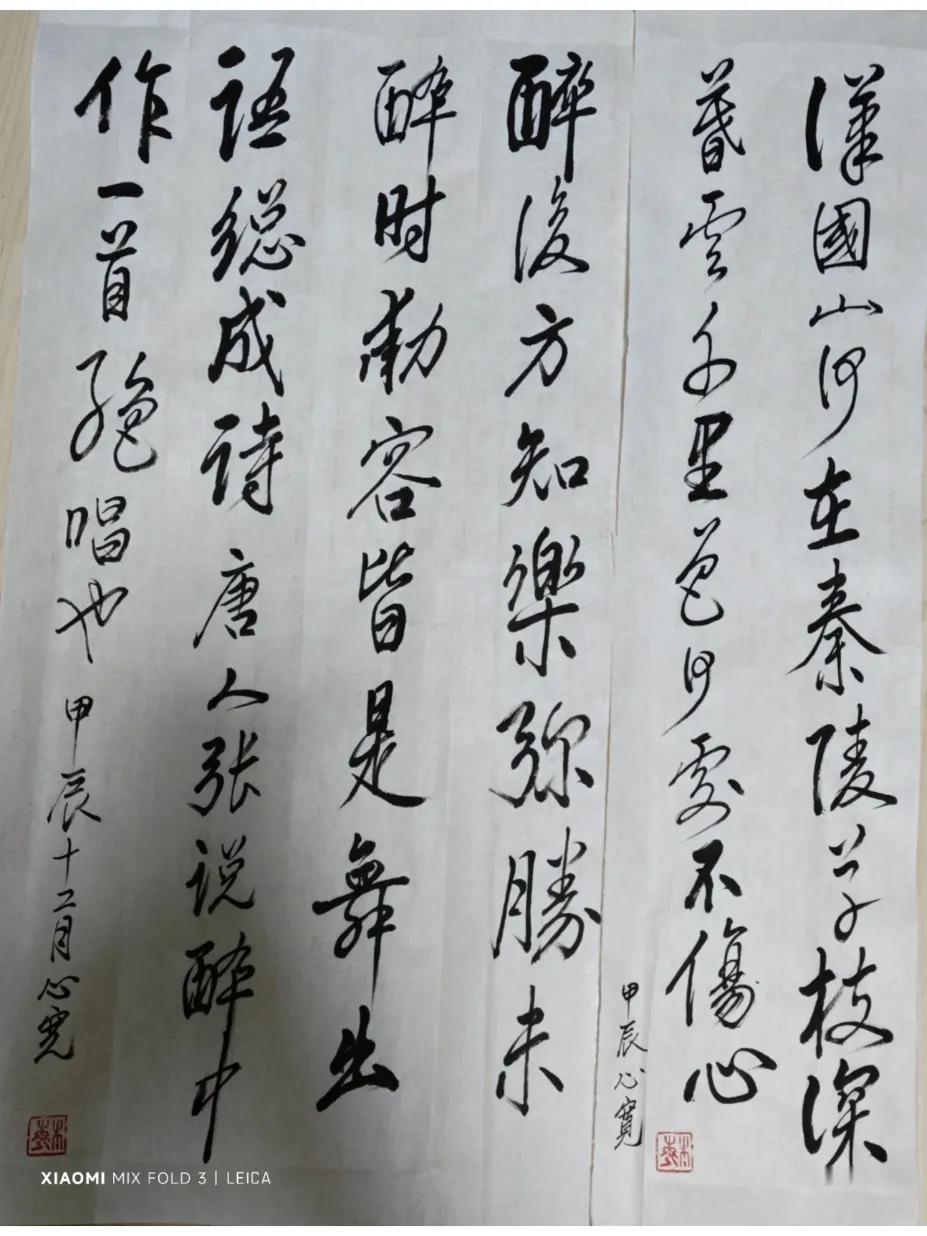 漢國山河在秦陵草枝深
暮雲千里色何處不傷心
甲辰心寬
醉後方知樂彌勝未
醉时動容皆是舞出
语総成诗唐人张说醉中
作一首絶唱也甲辰十二月心宽
XIAOMI MIX FOLD 3 | LEICA